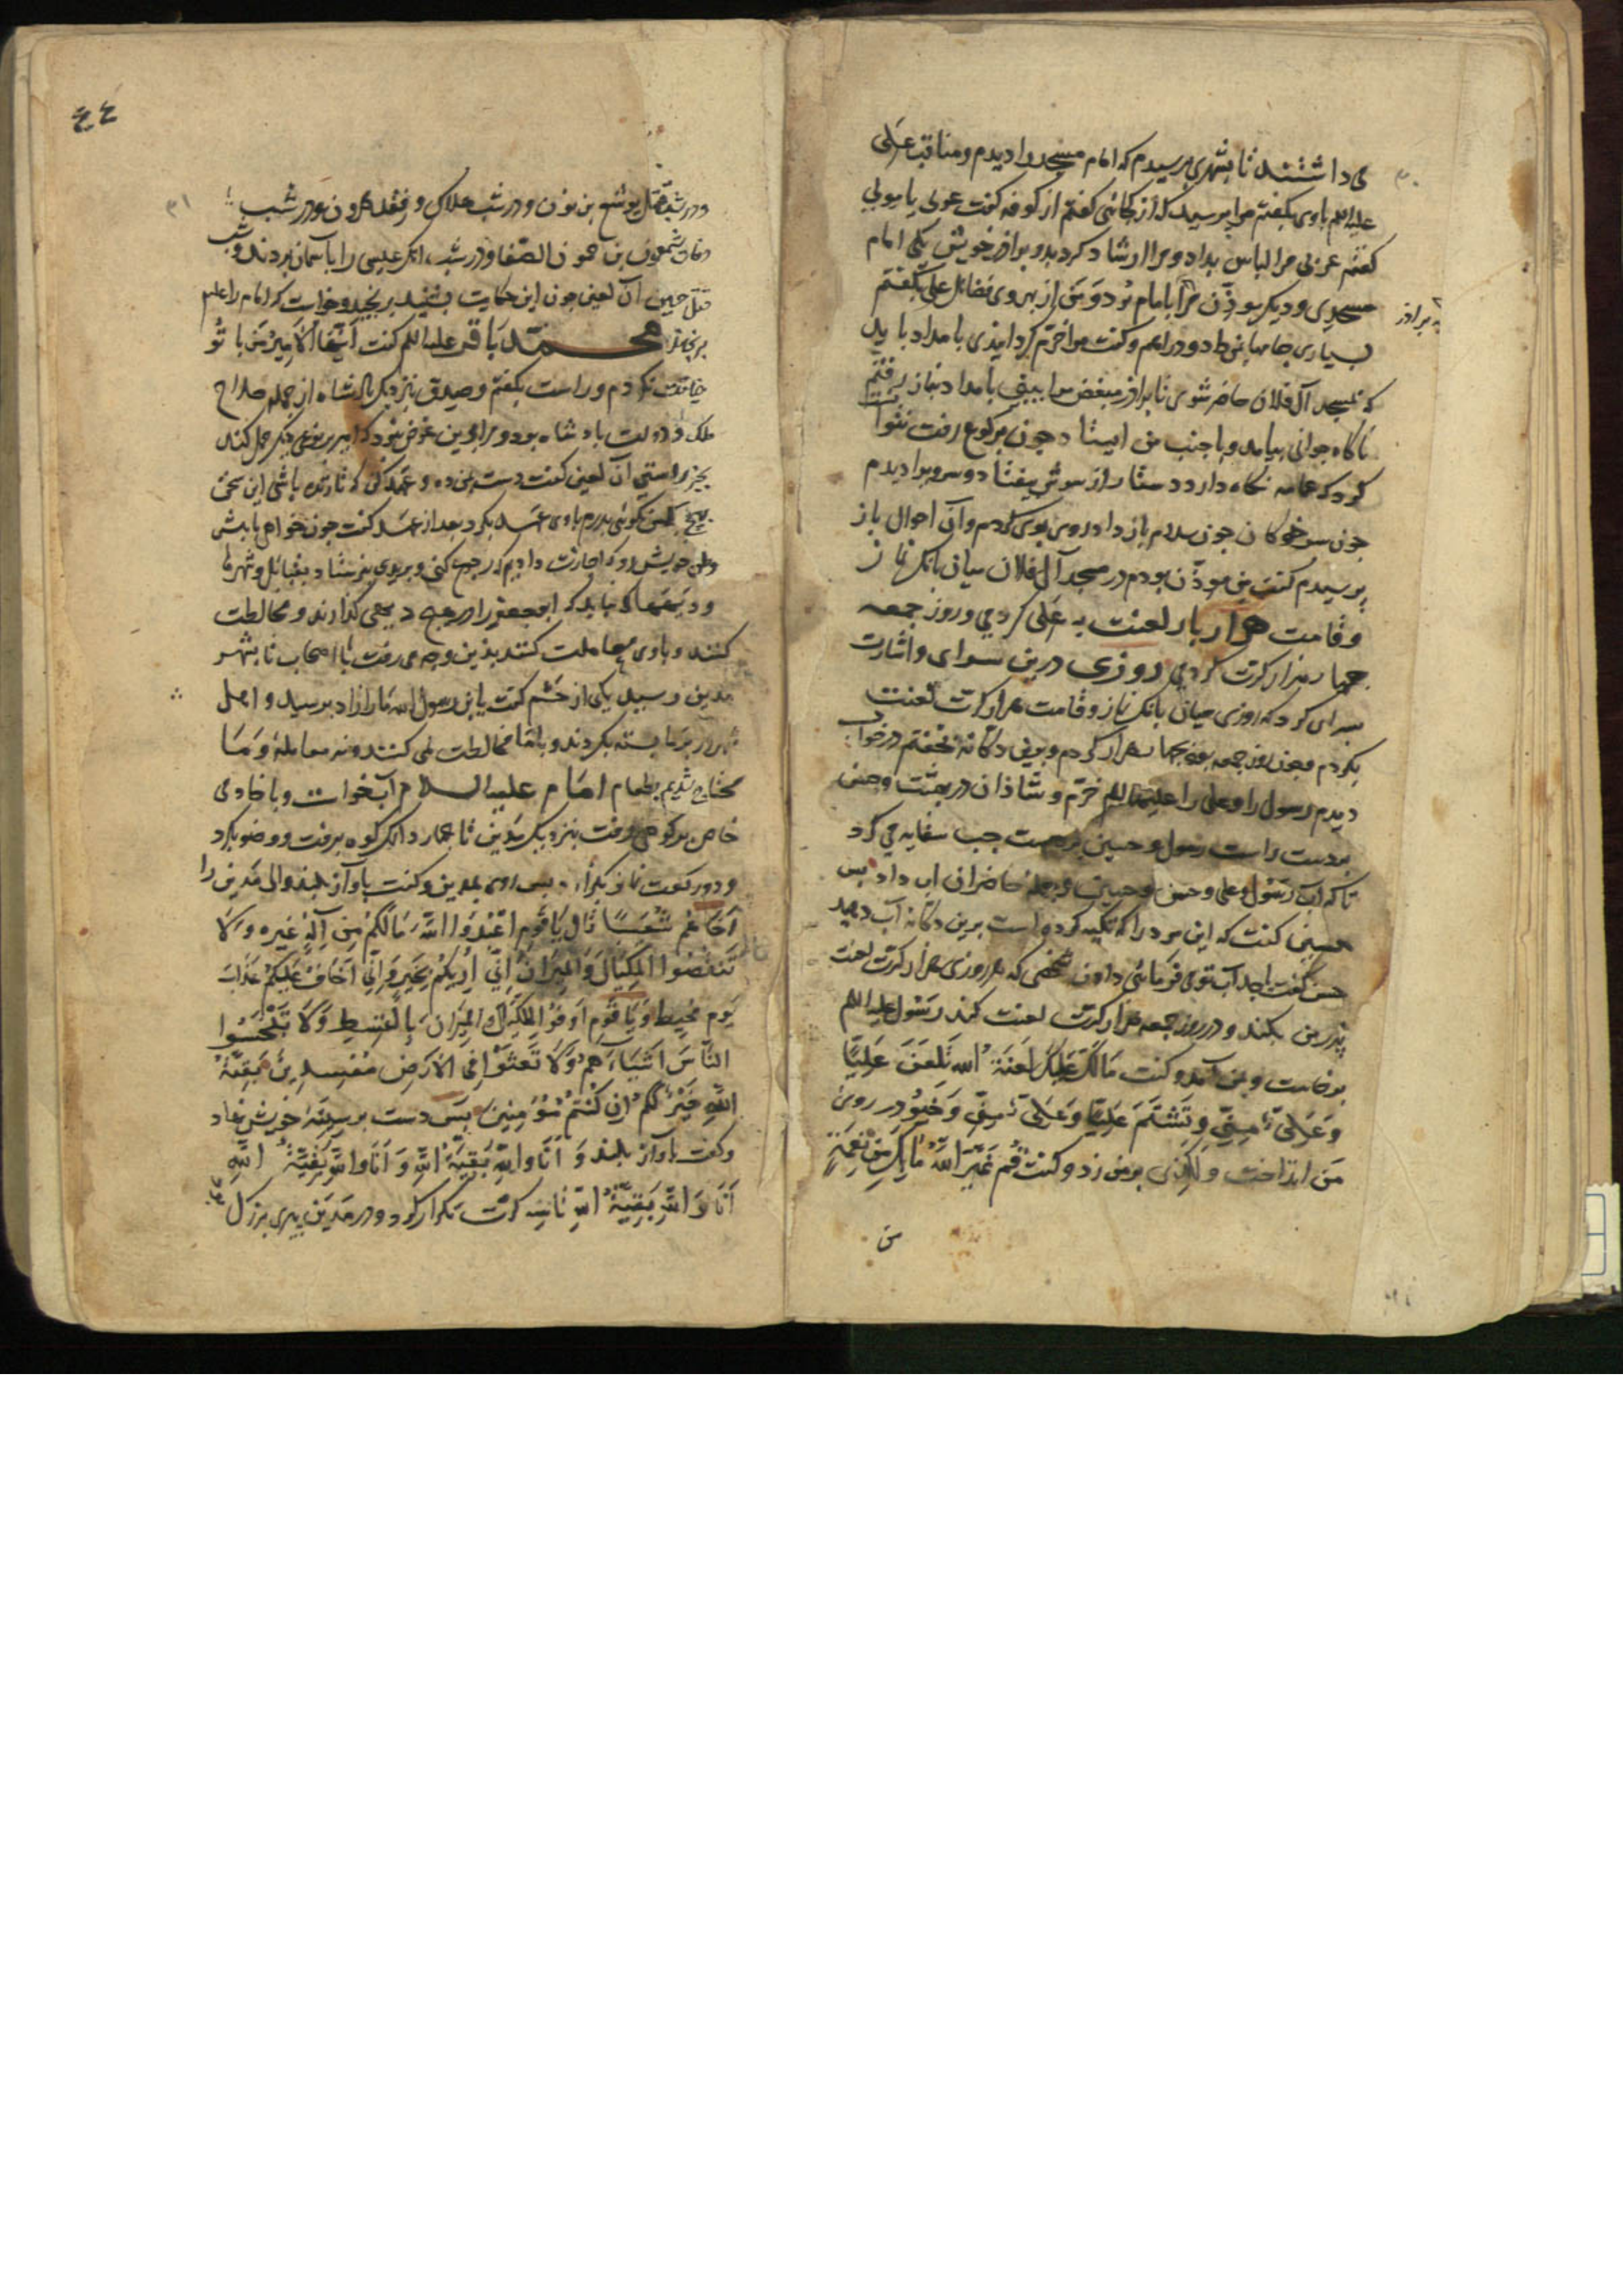 می داشتند تا بشهری برسیدم که امام مسجد را دیدم و مناقب علی
علیه السلم باوی بگفتم مرا پرسید که از کجائی گفتم از کوفه گفت عربی یا مولی
گفتم عربی مرا لباس بداد و مرا ارشاد کرد بدو برادر خویش یکی امام
مسجدی و دیگر موذن مرا با امام بود و من از بهر وی فضائل علی بگفتم
بسیاری جامها بمن داد و دراهم و گفت مرا خرم گردانیدی بامداد باید
که بمسجد آل فلان حاضر شوی تا برادر مبغض مرا ببینی بامداد بنماز رفتم
ناگاه جوانی بیامد و با جنب من ایستاد چون برکوع رفت نتوا نست
کرد که عمامه نگاه دارد دستار از سرش بیفتاد و سر ویرا دیدم
چون سر خوکان چون سلام باز داد روی بوی کردم و آن احوال باز
پرسیدم گفت من موذن بودم در مسجد آل فلان میان بانک نماز
و قامت هزار بار لعنت به علی کردمی و روز جمعه
چهار هزار کرت کردمی روزی درین سرای و اشارت
بسرای کرد که روزی میان بانک نماز و قامت هزار کرت لعنت
بکردم و چون روز جمعه بود چهار هزار کردم و برین دکانه بخفتم در خواب
دیدم رسول را و علی را علیهما السلم خرم و شاذان در بهشت و حسن
بردست راست رسول و حسین بر دست چپ سقایه می کرد
تا که آب رسول و علی و حسن و حسین و جمله حاضران آب داد پس
حسین گفت که این مرد را که تکیه کرده است برین دکانه آب دهید
حسن گفت یا جد آب توی فرمائی دادن شخصی که هر روزی هزار کرت لعنت
پدر من بکند و در روز جمعه هزار کرت لعنت کند رسول علیه السلم
برخاست و بمن آمد و گفت مالک علیک لعنة الله تلعن علیا
و علی منی و تشتم علیا و علی منی و خیو در روی
من انداخت و لکدی بر من زد و گفت قم غیر الله ما بک من نعمة
من
به برادر
۳۰
۴۴
۳۱
و در شب قتل یوشع بن نون و در شب هلاک و فقد هرون و در شب
وفات شمعون بن حمون الصفا و در شب انک عیسی را بآسمان بردند و شب
قتل حسین آن لعین چون این حکایت بشنید برنجید و خواست که امام را علیه
برنجاند محمد باقر علیه السلم گفت ایها الامیر من با تو
خیانت نکردم و راست بگفتم و صدق بنزدیک پادشاه از جمله صلاح
ملک و دولت پادشاه بود و مرا بدین غرض نبود که امیر بر نوعی دیگر حمل کند
بجز راستی آن لعین گفت دست بمن ده و عهد کن که تا زنده باشی این سخن
بهیچ کس نگوئی پدرم باوی عهد بکرد بعد از عهد گفت چون خواهی بابش
وطن خویش رو که اجازت دادیم که رجوع کنی و برودی بفرستاد بقبائل و شهرها
و دیهها که نباید که ابو جعفر را در هیچ دیهی گذارند و مخالطت
کنند و باوی معاملت کنند بذین وجه می رفت با اصحاب تا بشهر
مدین رسید یکی از حشم گفت یا ابن رسول الله ما را زاد برسید و اهل
شهر در بر ما بسته بکردند و با ما مخالطت نمی کنند و نه معامله و ما
محتاج شدیم بطعام امام علیه السلام آب خواست و با خادمی
خاص بر کوهی رفت بنزدیک مدین تا چهار دانک کوه برفت و وضو بکرد
و دو رکعت نماز بگزارد پس روی بمدین و گفت باواز بلند والی مدین را
اخاهم شعیبا قال یا قوم اعبدوا الله ما لکم من اله غیره و لا
تنقصوا المکیال و المیزان انی اریکم بخیر و انی اخاف علیکم عذاب
یوم محیط و یا قوم اوفوا المکیال و المیزان بالقسط و لا تبخسوا
الناس اشیاءهم و لا تعثوا فی الارض مفسدین بقیة
الله خیر لکم ان کنتم مؤمنین پس دست بر سینه خویش نهاد
و گفت باواز بلند و انا والله بقیة الله و انا والله بقیة الله
انا والله بقیة الله ثانیه کرت تکرار کرد و در مدین پیری بزرگ